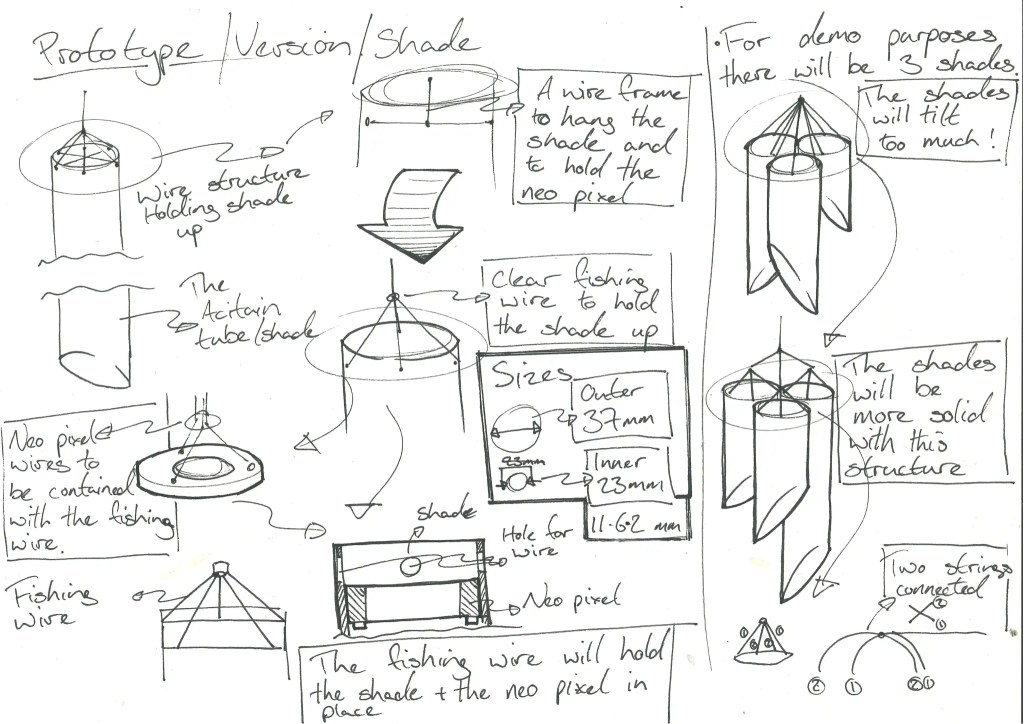 Prototype / Version / Shade
Wire structure
Holding shade
up
A wire frame
to hang the
shade and
to hold the
neo pixel
The
Acitain
tube/shade
Clear fishing
wire to hold
the shade up
Sizes
Outer
37mm
23mm
Inner
23mm
11.6.2 mm
Neo pixel
wires to
be contained
with the fishing
wire.
Fishing
wire
shade
Hole for
wire
Neo pixel
The fishing wire will hold
the shade + the neo pixel in
place
• For demo purposes
there will be 3 shades.
The shades
will tilt
too much!
The shades
will be
more solid
with this
structure
Two strings
connected
2
1
1 2 2 1
2 1 2 1